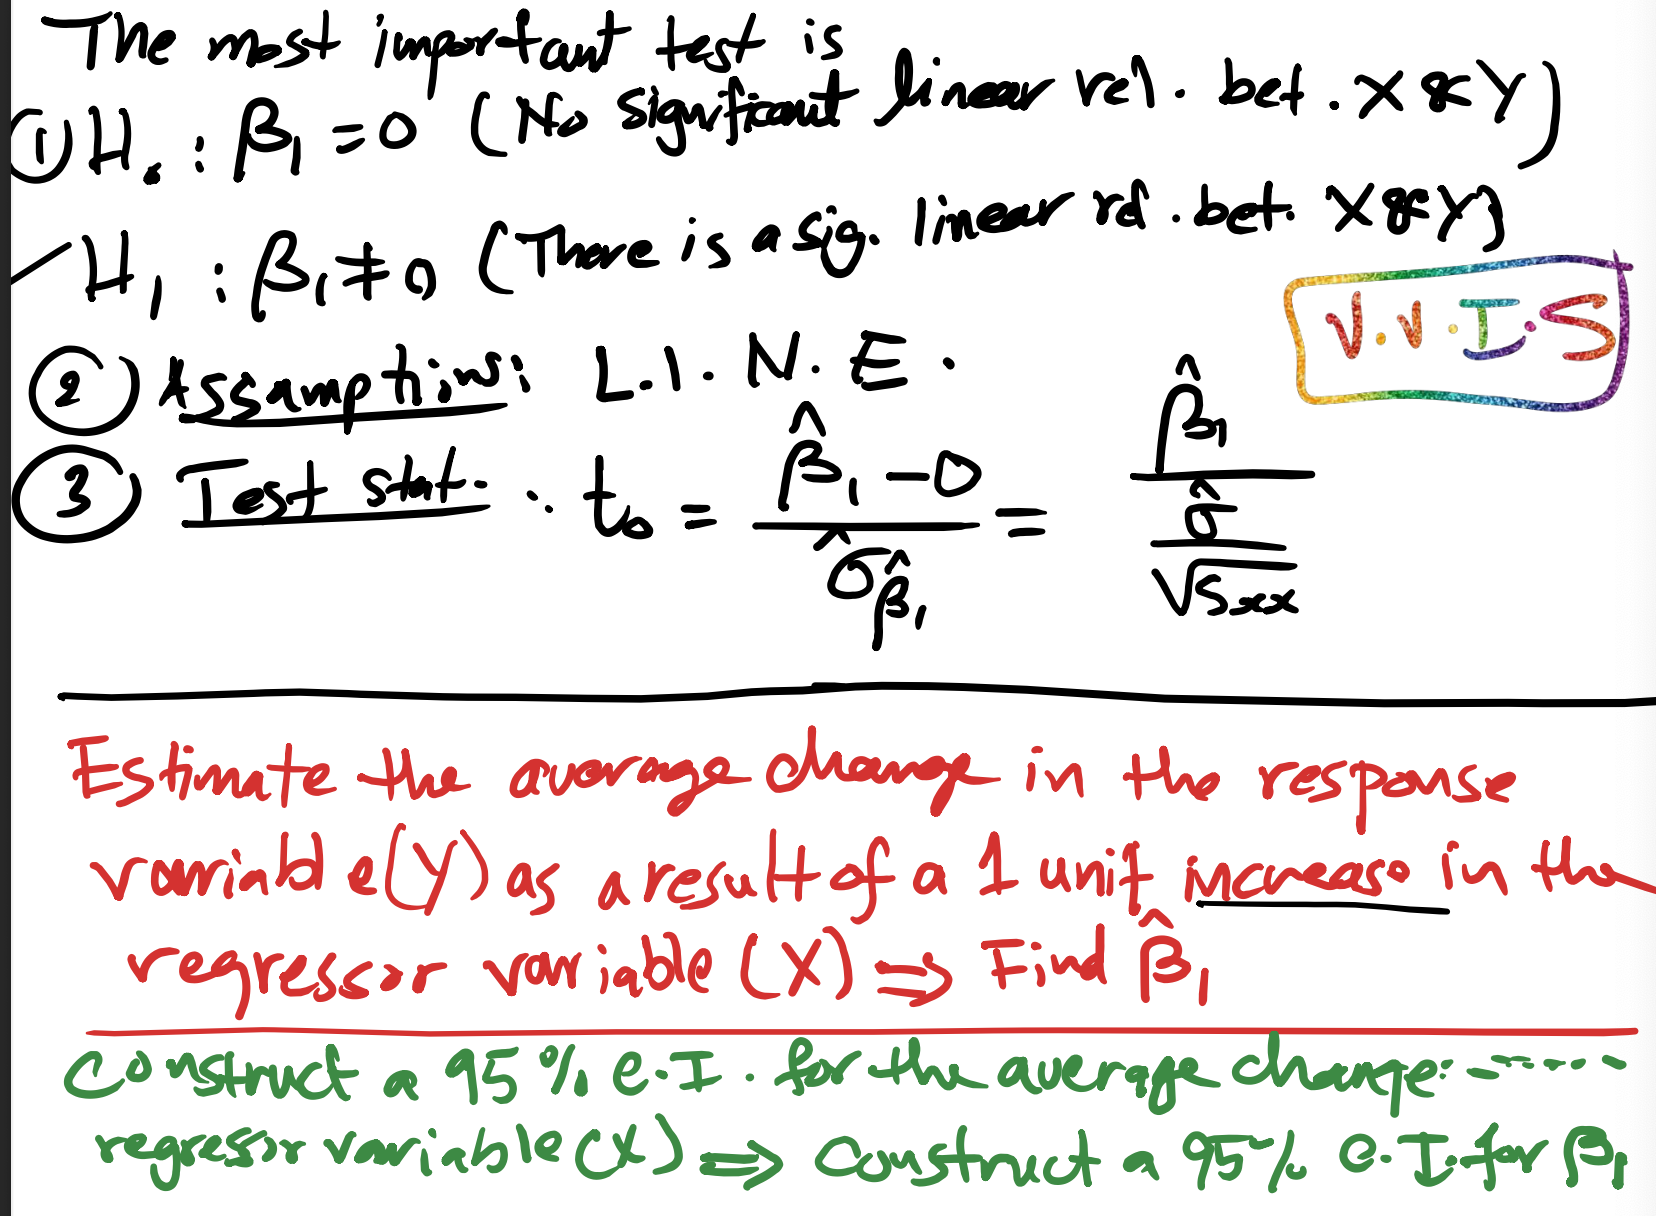 The most important test is
① H₀ : β₁ = 0 (No significant linear rel. bet. X & Y)
H₁ : β₁ ≠ 0 (There is a sig. linear rel. bet. X & Y)
V.V.I.S
② Assumptions: L.I.N.E.
③ Test stat. t₀ = (β̂₁ - 0) / σ̂_β̂₁ = β̂₁ / (σ̂ / √Sxx)
Estimate the average change in the response
variable (Y) as a result of a 1 unit increase in the
regressor variable (X) ⇒ Find β̂₁
Construct a 95% C.I. for the average change -----
regressor variable (X) ⇒ Construct a 95% C.I. for β₁